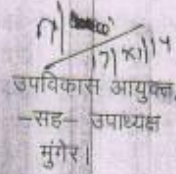 17/XI/14
उपविकास आयुक्त,
-सह- उपाध्यक्ष
मुंगेर।